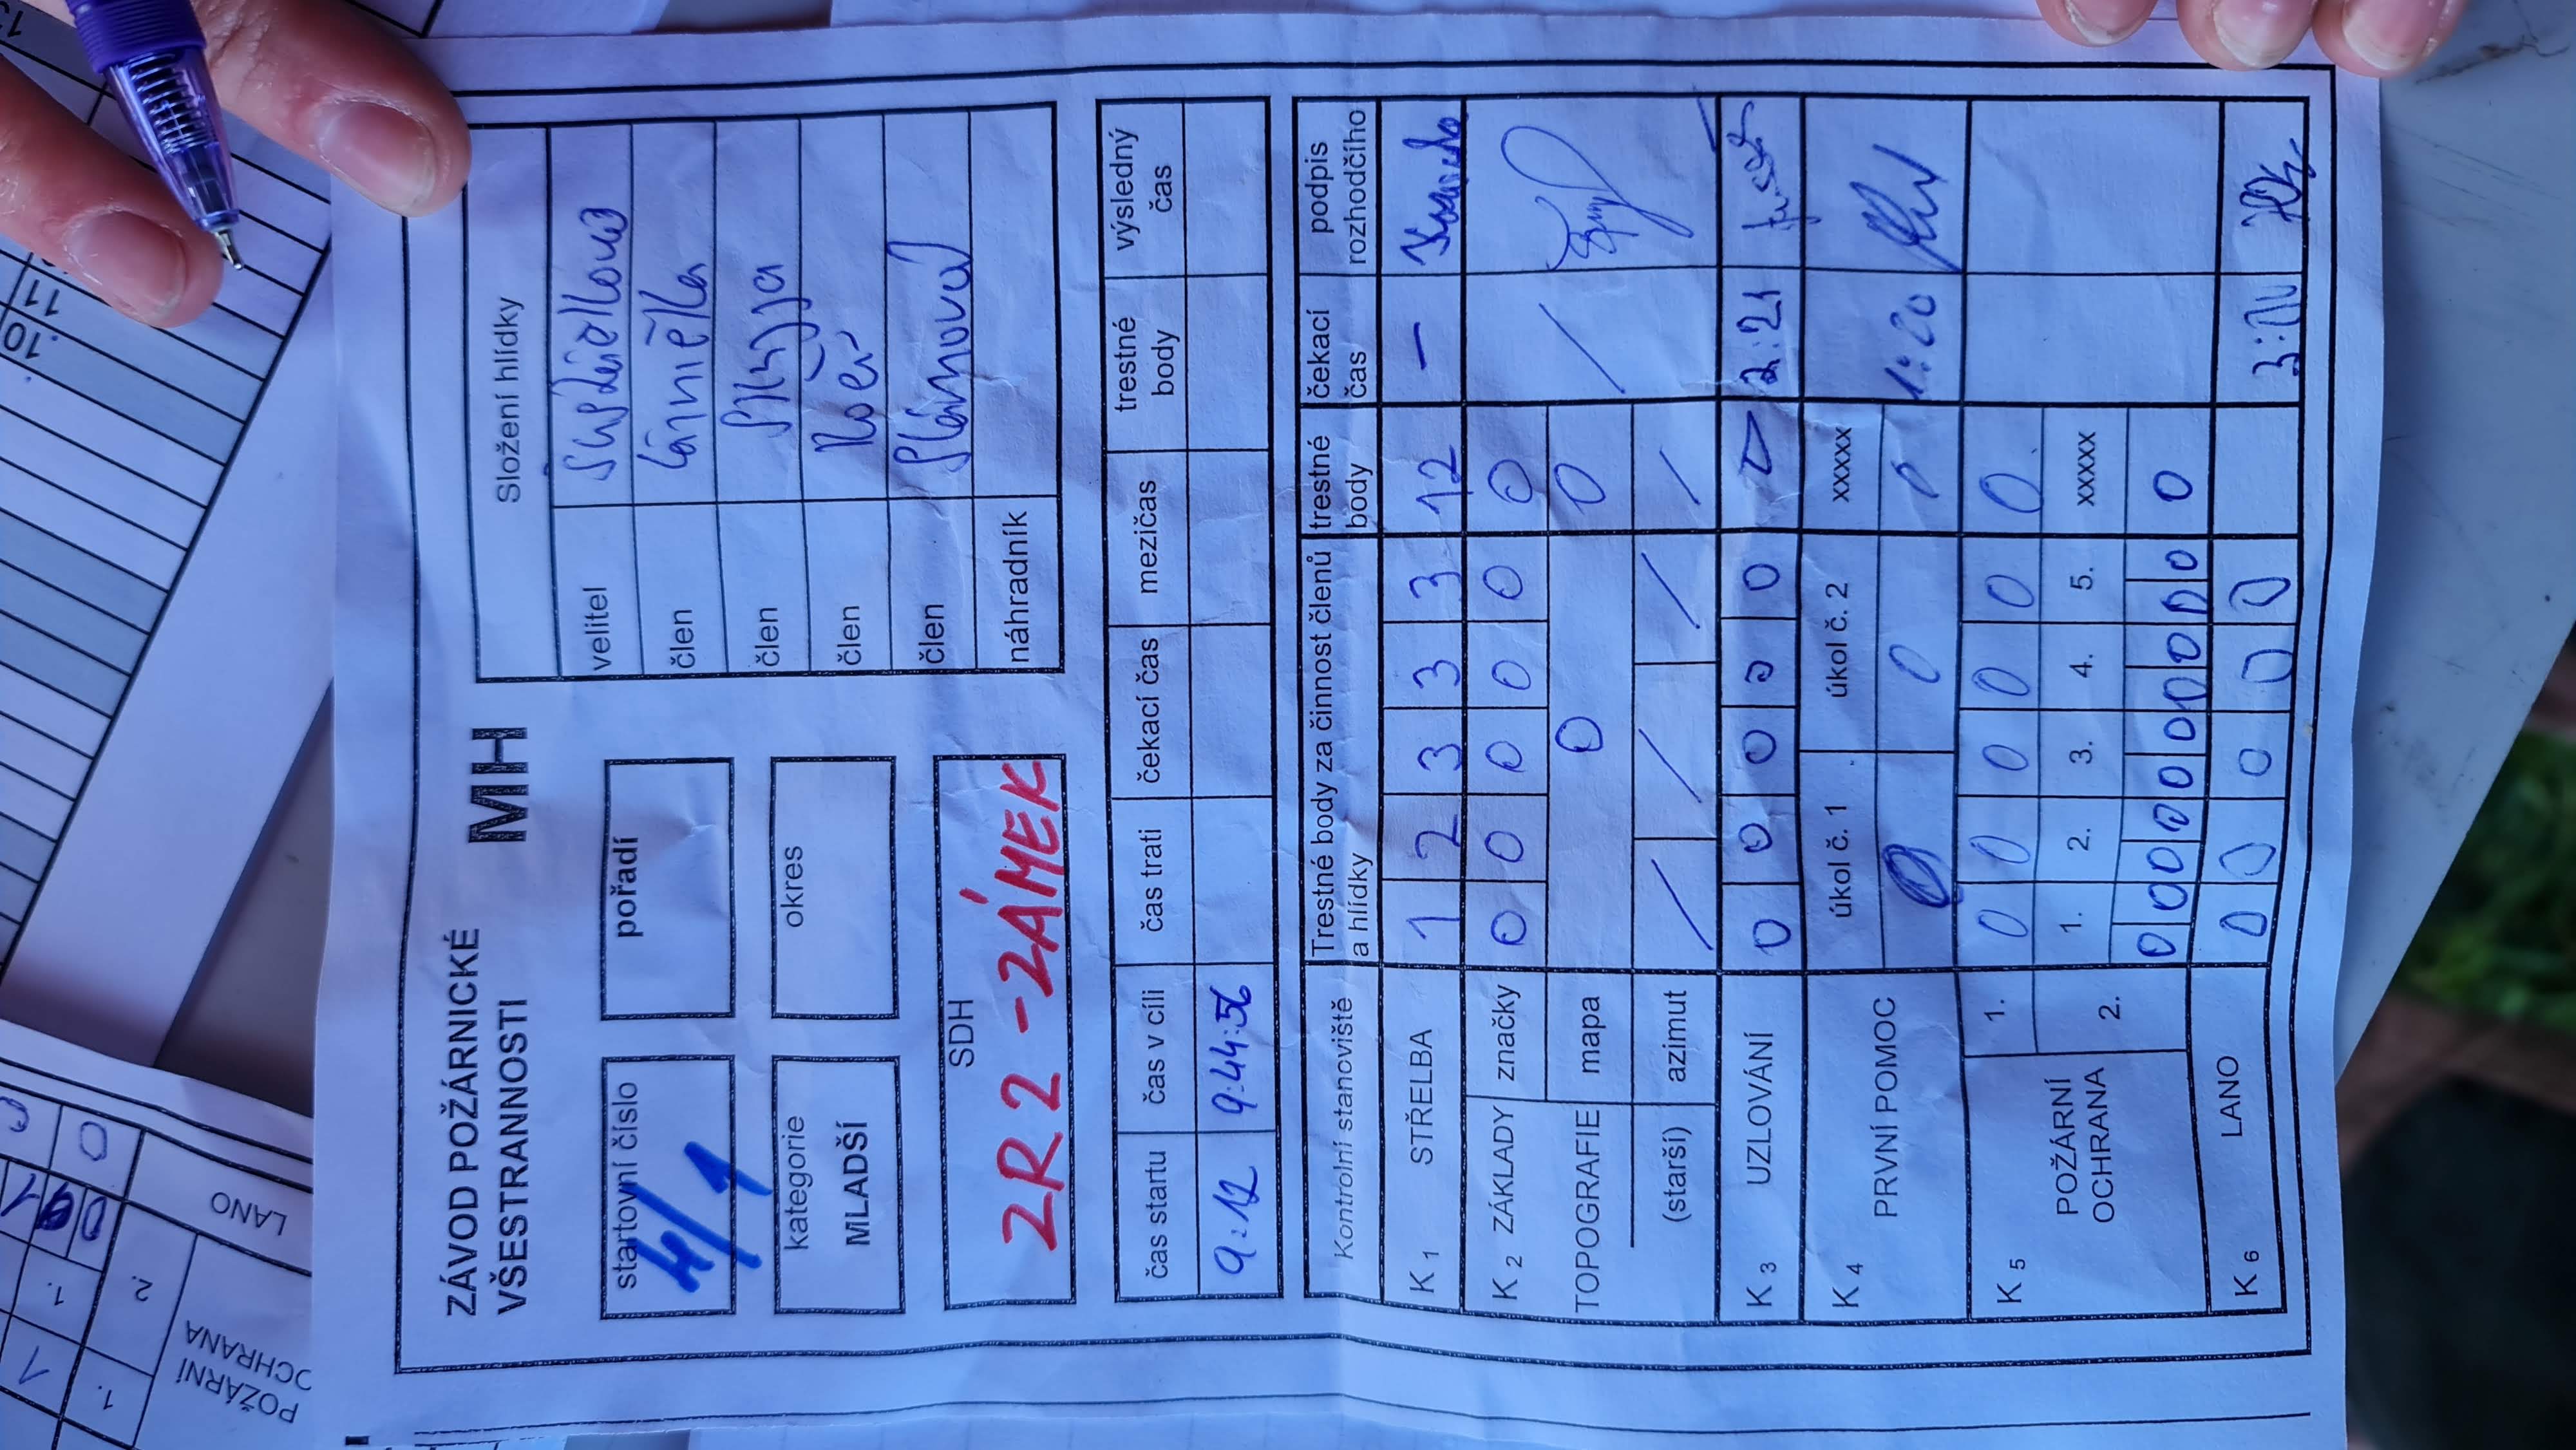 ZÁVOD POŽÁRNICKÉ
VŠESTRANNOSTI MH
startovní číslo 4/1
pořadí
kategorie
MLADŠÍ
okres
SDH
ZR 2 - ZÁMEK
Složení hlídky
velitel
člen
člen
člen
člen Slámová
náhradník
čas startu čas v cíli čas trati čekací čas mezičas trestné body výsledný čas
9:12 9:44:56
Kontrolní stanoviště Trestné body za činnost členů a hlídky trestné body čekací čas podpis rozhodčího
K 1 STŘELBA 1 2 3 3 3 12 –
K 2 ZÁKLADY TOPOGRAFIE značky 0 0 0 0 0 0 /
mapa 0 0
(starší) azimut / / / /
K 3 UZLOVÁNÍ 0 0 0 0 0 0 2:21
K 4 PRVNÍ POMOC úkol č. 1 úkol č. 2 xxxxx
0 0 0 1:20
K 5 POŽÁRNÍ OCHRANA 1. 0 0 0 0 0 0
2. 1. 2. 3. 4. 5. xxxxx
0 0 0 0 0 0 0 0 0 0 0
K 6 LANO 0 0 0 0 0
POŽÁRNÍ
OCHRANA
1.
2.
1.
LANO
0
1
10.
11